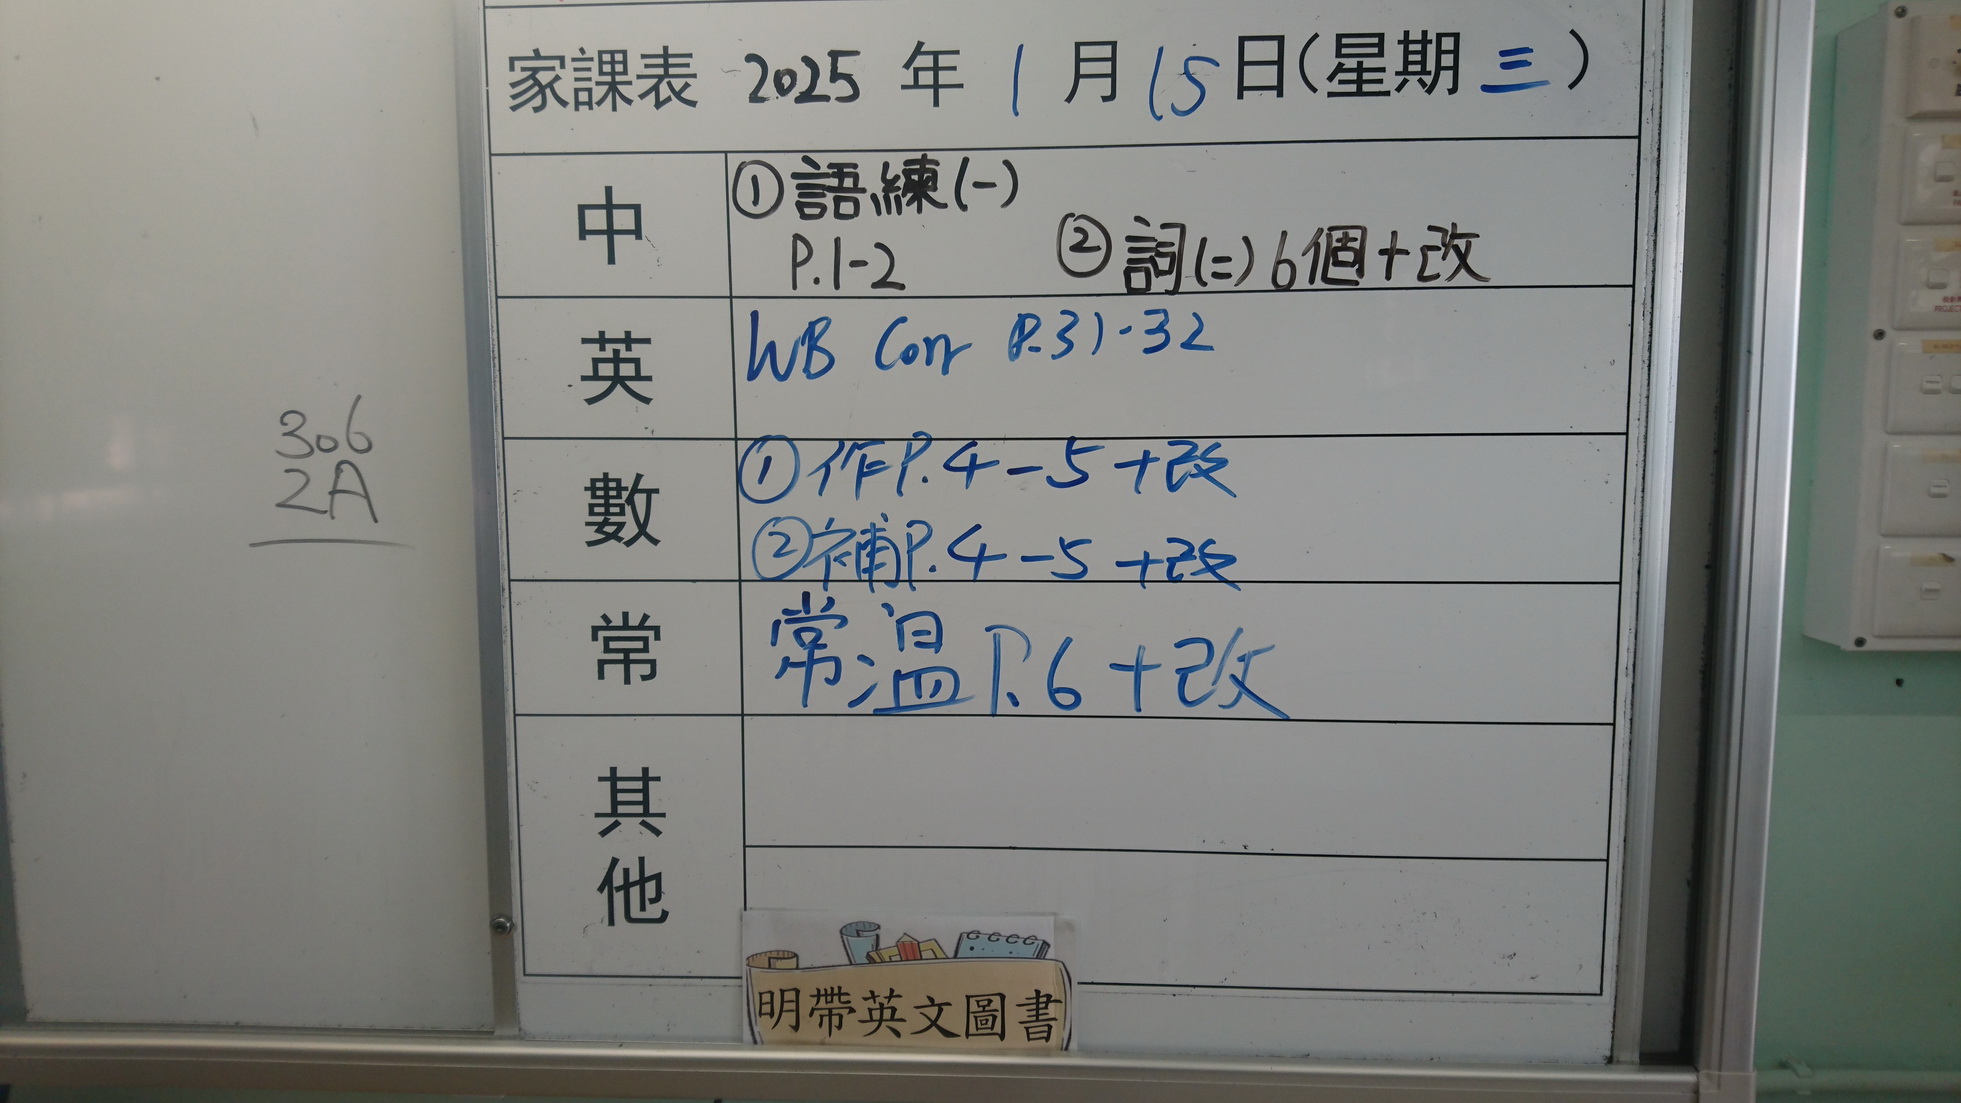 家課表 2025 年 1 月 15 日(星期三)
306
2A
中
①語練(一)
P.1-2 ②詞(二)6個+改
英
WB Corr P.31-32
數
①作P.4-5+改
②補P.4-5+改
常
常温P.6+改
其他
明帶英文圖書